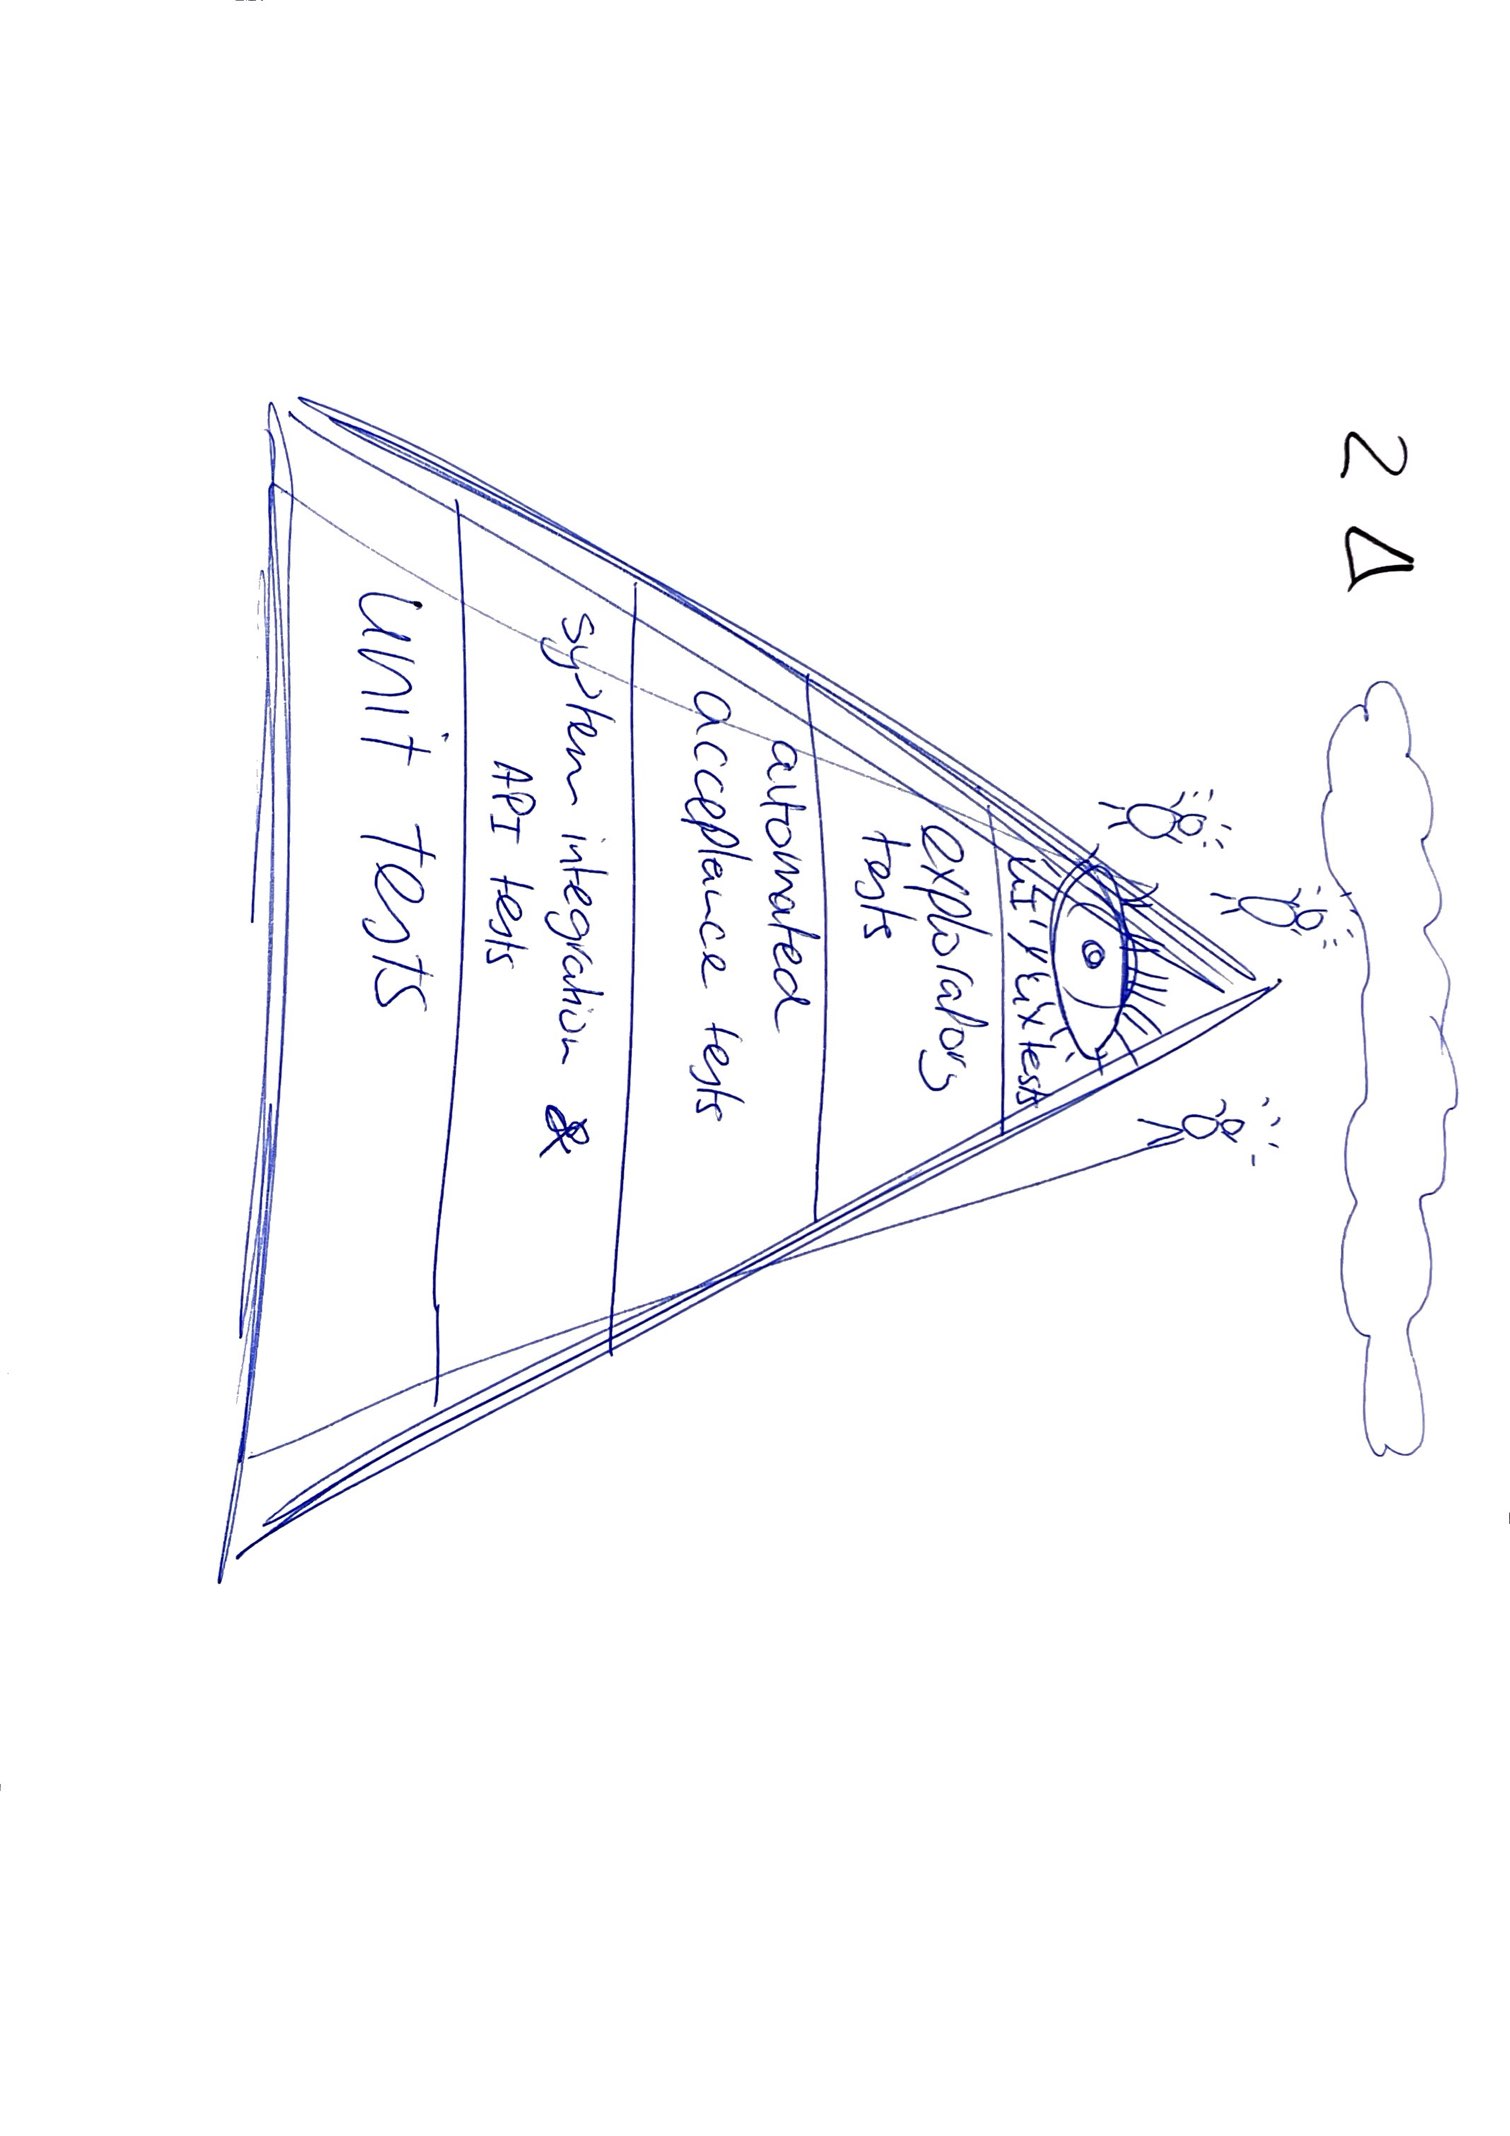 2 Δ
UI / UX tests
exploratory
tests
automated
acceptance tests
system integration &
API tests
unit tests